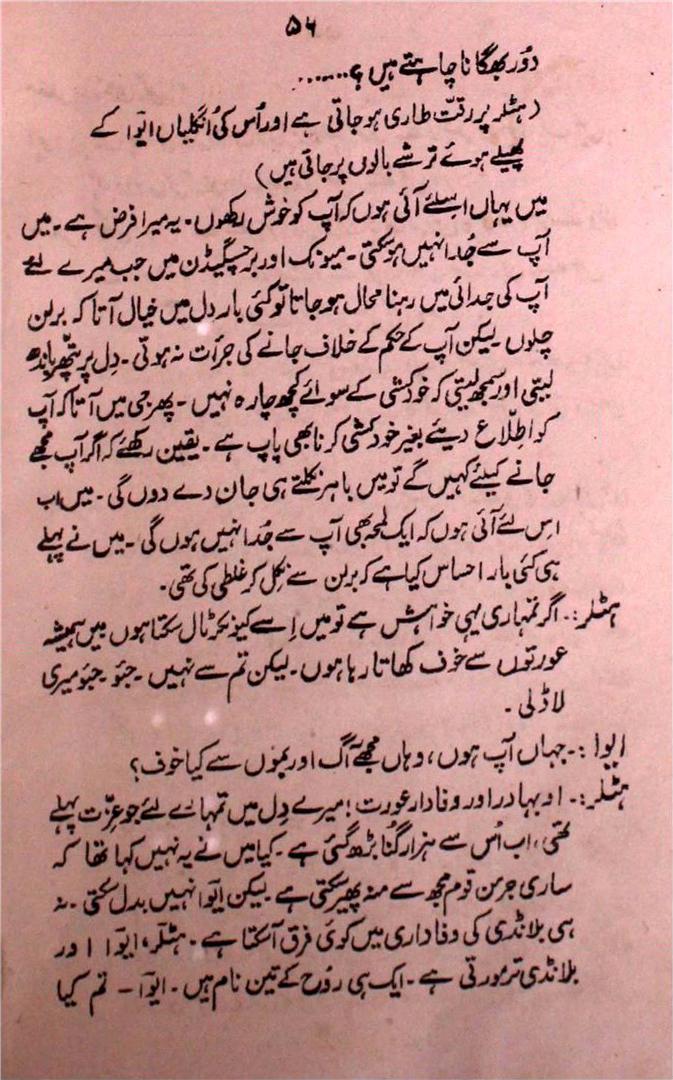 ۵۶
دُور بھگانا چاہتے ہیں؟.......
(ہٹلر پر رقّت طاری ہو جاتی ہے اور اُس کی اُنگلیاں ایوّا کے
پھیلے ہوئے ترشے بالوں پر جاتی ہیں)
میں یہاں اسلئے آئی ہوں کہ آپ کو خوش رکھوں۔ یہ میرا فرض ہے۔ میں
آپ سے جُدا نہیں ہو سکتی۔ میونک اور برحسگیڈن میں جب میرے لئے
آپ کی جدائی میں رہنا محال ہو جاتا تو کئی بار دل میں خیال آتا کہ برلن
چلوں لیکن آپ کے حکم کے خلاف جانے کی جرأت نہ ہوتی۔ دِل پر پتّھر باندھ
لیتی اور سمجھ لیتی کہ خودکشی کے سوائے کچھ چارہ نہیں۔ پھر جی میں آتا کہ آپ
کو اطلّاع دیئے بغیر خودکشی کرنا بھی پاپ ہے۔ یقین رکھئے کہ اگر آپ مجھے
جانے کیلئے کہیں گے تو میں باہر نکلتے ہی جان دے دوں گی۔ میں اب
اس لئے آئی ہوں کہ ایک لمحہ بھی آپ سے جُدا نہیں ہوں گی۔ میں نے پہلے
ہی کئی بار احساس کیا ہے کہ برلن سے نکل کر غلطی کی تھی۔
ہٹلر:۔ اگر تمہاری یہی خواہش ہے تو میں اِسے کیونکر ٹال سکتا ہوں میں ہمیشہ
عورتوں سے خوف کھاتا رہا ہوں۔ لیکن تم سے نہیں۔ جئو۔ جئو میری
لاڈلی۔
ایوا:۔ جہاں آپ ہوں، وہاں مجھے آگ اور بموں سے کیا خوف؟
ہٹلر:۔ او بہادر اور وفادار عورت! میرے دِل میں تمہارے لئے جو عزّت پہلے
تھی، اب اُس سے ہزار گُنا بڑھ گئی ہے۔ کیا میں نے یہ نہیں کہا تھا کہ
ساری جرمن قوم مجھ سے منہ پھیر سکتی ہے لیکن ایوّا نہیں بدل سکتی۔ نہ
ہی بلانڈی کی وفاداری میں کوئی فرق آ سکتا ہے۔ ہٹلر، ایوّا اور
بلانڈی ترمورتی ہے۔ ایک ہی روُح کے تین نام ہیں۔ ایوّا۔ تم کیا